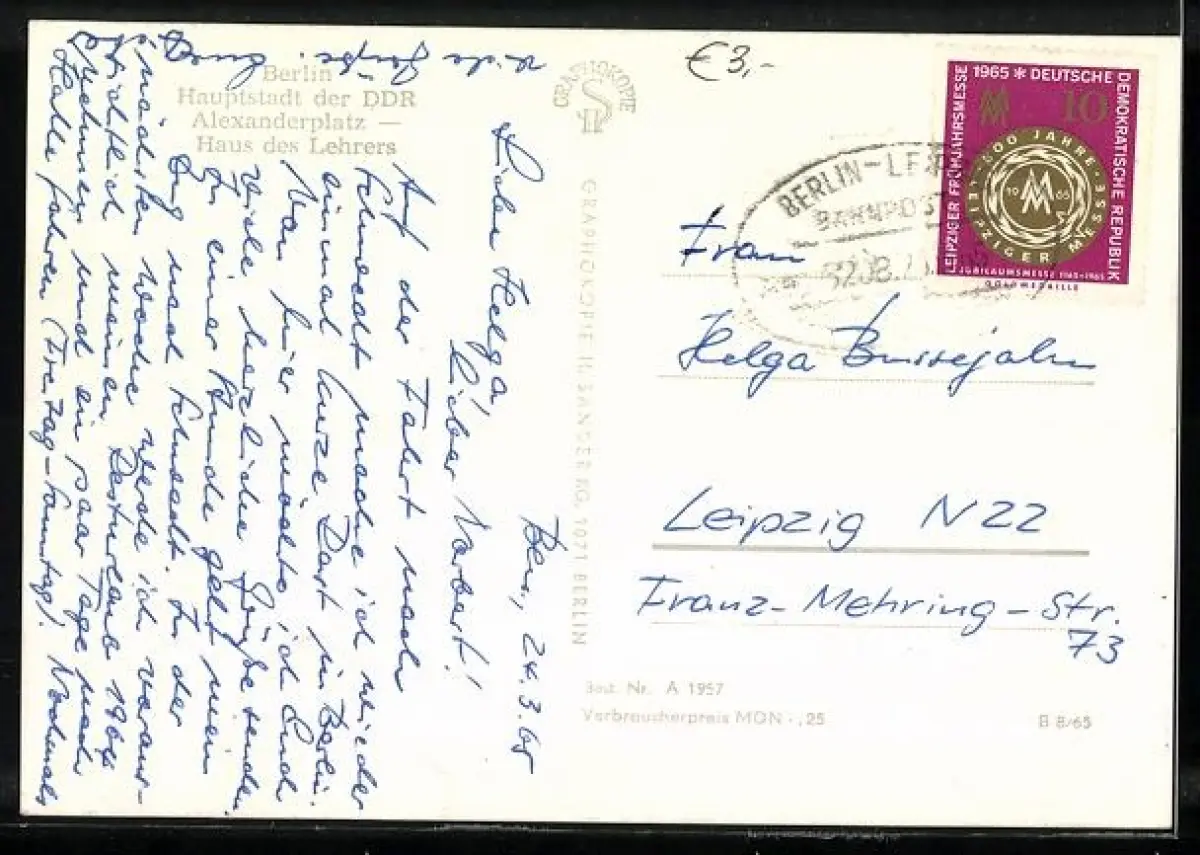 Berlin
Hauptstadt der DDR
Alexanderplatz —
Haus des Lehrers
GRAPHOKOPIE
H S
GRAPHOKOPIE H. SANDER KG, 1071 BERLIN
€3,-
1965 * DEUTSCHE
DEMOKRATISCHE REPUBLIK
LEIPZIGER FRÜHJAHRSMESSE
MM
10
800 JAHRE
LEIPZIGER MESSE
JUBILÄUMSMESSE 1165-1965
GOLDMEDAILLE
BERLIN-LEIP
BAHNPOST
Ber., 24.3.65
Liebe Helga,
lieber Norbert!
Auf der Fahrt nach
Schwedt mache ich wieder
einmal kurze Rast in Berlin.
Von hier möchte ich Euch
viele herzliche Grüße senden.
In einer Stunde geht mein
Zug nach Schwedt. In der
nächsten Woche werde ich voraus-
sichtlich meinen Resturlaub 1964
nehmen und ein paar Tage nach
Halle fahren (Freitag-Sonntag). Nochmals
viele Grüße
Frau
Helga Bussejahn
Leipzig N22
Franz-Mehring-Str.
73
Best. Nr. A 1957
Verbraucherpreis MDN -,25
B 8/65